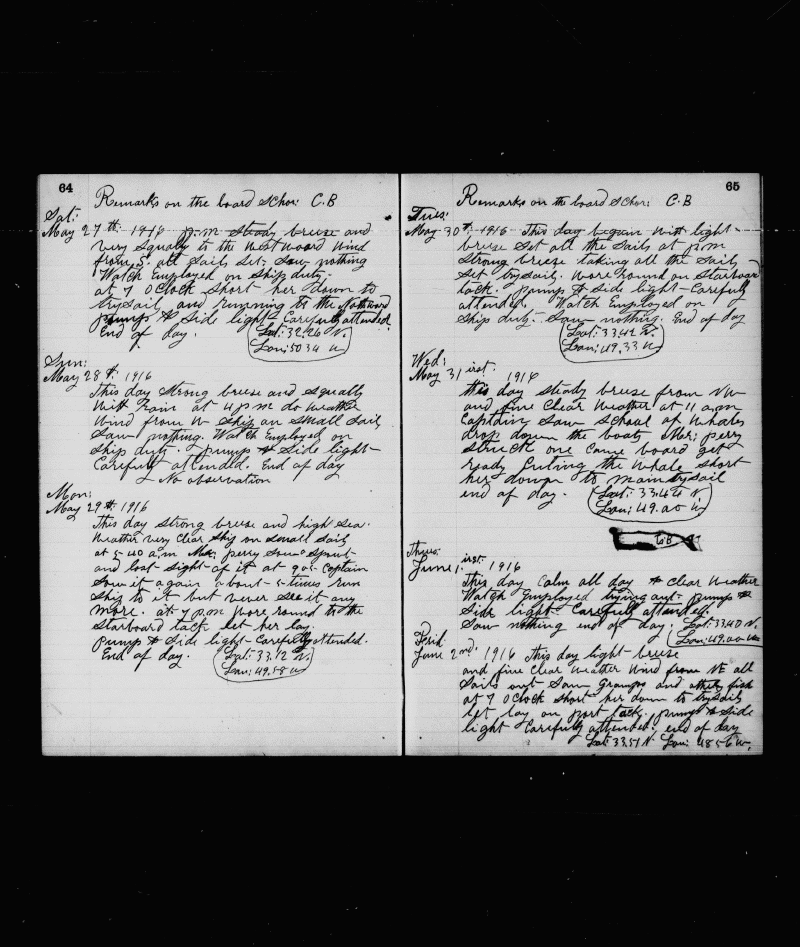 64
Remarks on the board Schor: C.B
Sat:
May 27th. 1916 p.m steady breeze and
very squaly to the westward wind
from S. all sails set. saw nothing
Watch Employed on ship duty.
at 7 Oclock short her down to
trysail and running to the
pumps & side light Carefully attended
End of day.
Lat: 32.26 N.
Lon: 50 34 W
Sun:
May 28th. 1916
This day strong breeze and squally
with rain at 4 p m do weather
wind from W ship on small sail
Saw nothing. Watch Employed on
ship duty. pumps & side light-
Carefully attended. End of day
No observation
Mon:
May 29th. 1916
This day strong breeze and high sea.
weather very clear ship on small sails
at 5-40 a,m Mr. perry saw a sprout
and lost sight of it at 9 o. Captain
saw it again about 5 times run
ship to it but never see it any
more. at 7 p.m wore round to the
Starboard tack let her lay.
pumps & side light Carefully attended.
End of day.
Lat: 33.12 N.
Lon: 49.58 W
65
Remarks on the board Schor: C.B
Tues:
May 30th. 1916 This day begain with light-
breeze set all the sails at p.m
strong breeze taking all the sails
set trysail. wore round on Starboard
tack. pump & side light-Carefully
attended. Watch Employed on
ship duty. Saw nothing. End of day
Lat: 33.42 N.
Lon: 49.33 W
Wed:
May 31 irst. 1916
this day steady breeze from NW
and fine Clear weather at 11 a,m
Captain Saw School of whales
drop down the boats Mr: perry
struck one came board get
ready cutting the whale short
her down to main trysail
end of day.
Lat: 33.44 N.
Lon: 49.20 W
C.B
Thurs:
June 1. irst. 1916
This day calm all day & clear weather
Watch Employed trying out. pump &
side light. Carefully attended.
Saw nothing end of day.
Lat: 33.40 N.
Lon: 49.00 W
Frid
June 2nd. 1916 This day light-breeze
and fine Clear weather wind from NE all
sails out Saw Grampos and fish
at 7 OClock short her down to trysails
let lay on port tack, pumps & side
light Carefully attended. end of day
Lat: 33.51 N. Lon: 48 56 W.